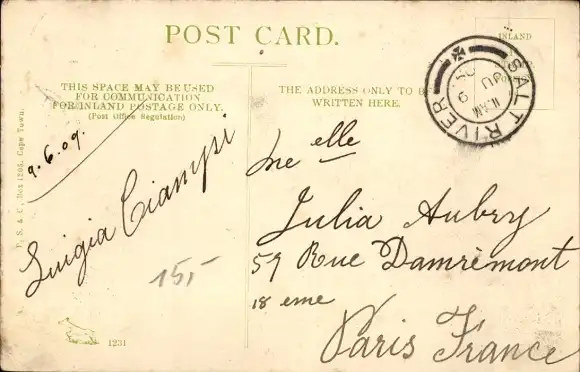 POST CARD.
THIS SPACE MAY BE USED
FOR COMMUNICATION
FOR INLAND POSTAGE ONLY.
(Post Office Regulation)
THE ADDRESS ONLY TO BE
WRITTEN HERE.
INLAND
SALT RIVER
11 AM
9 JU
09
9.6.09.
P. S. & C., Box 1285, Cape Town.
Luigia Ciampi
15,-
1231
Melle
Julia Aubry
59 Rue Damrémont
18 eme
Paris France